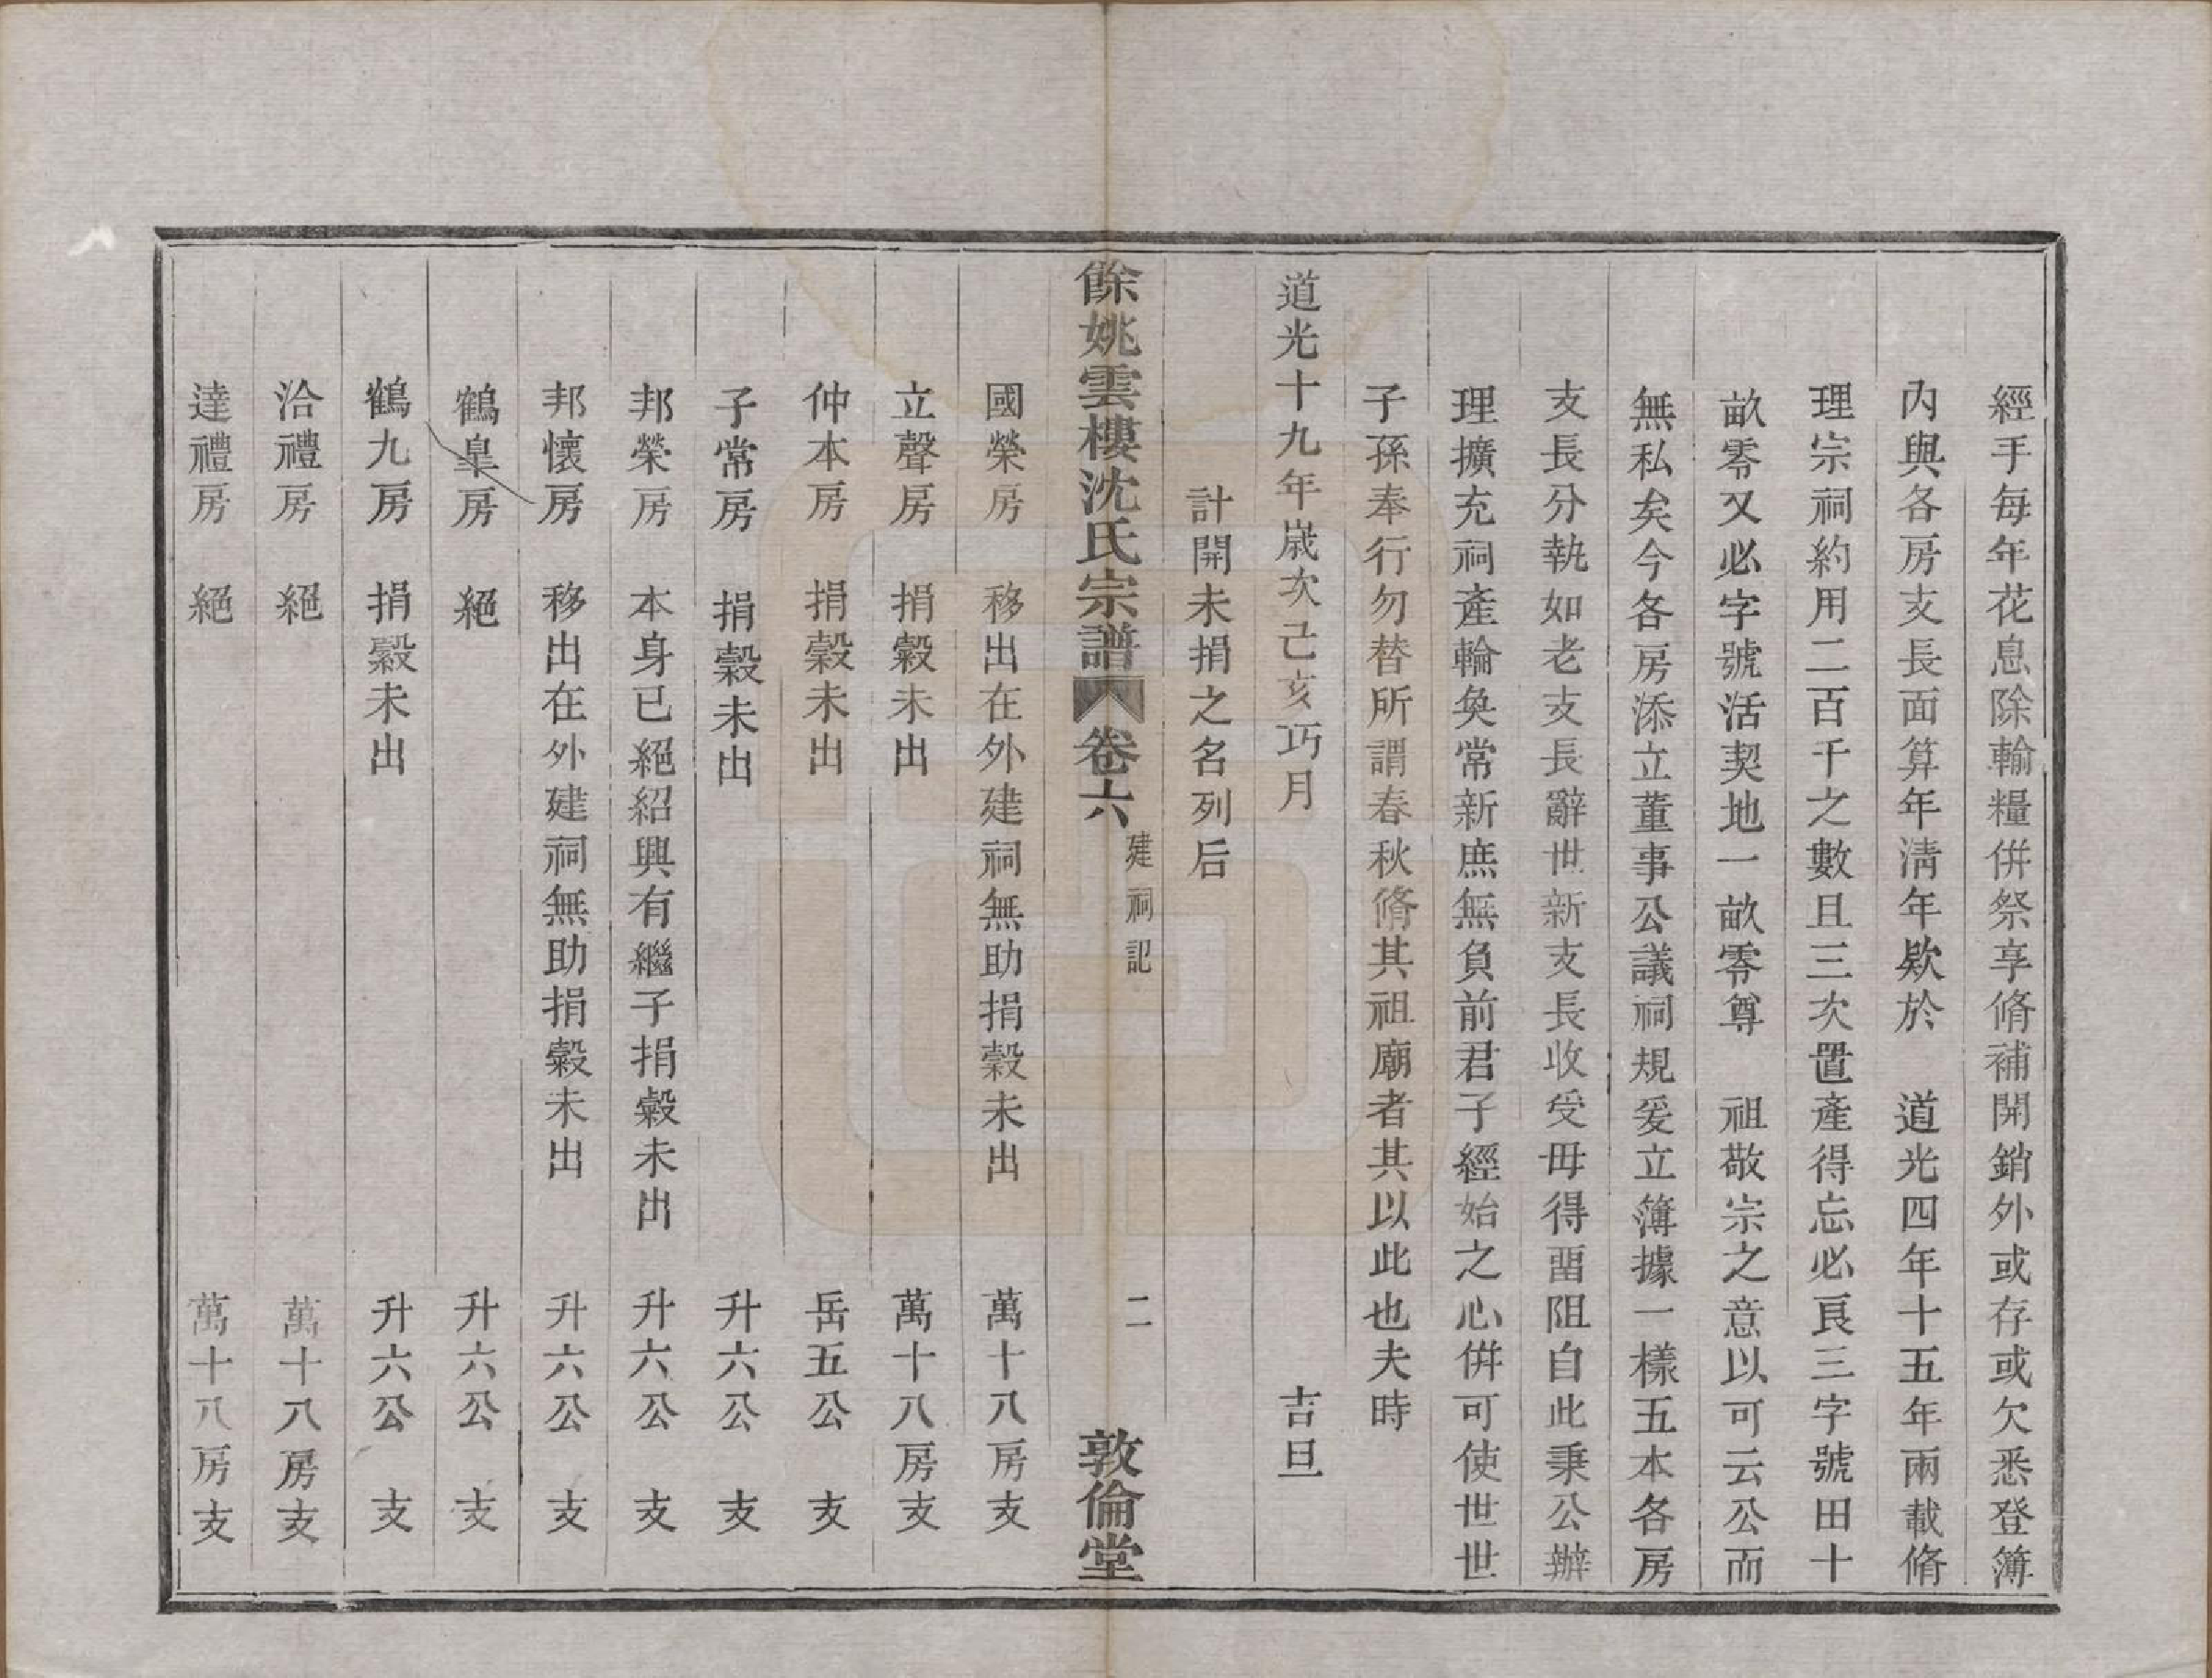 經手每年花息除輸糧併祭享脩補開銷外或存或欠悉登簿
內與各房支長面算年清年欵於　道光四年十五年兩載脩
理宗祠約用二百千之數且三次置產得忘必良三字號田十
畝零又必字號活契地一畝零尊　祖敬宗之意以可云公而
無私矣今各房添立董事公議祠規爰立簿據一樣五本各房
支長分執如老支長辭世新支長收受毋得畱阻自此秉公辦
理擴充祠產輪奐常新庶無負前君子經始之心併可使世世
子孫奉行勿替所謂春秋脩其祖廟者其以此也夫時
道光十九年歲次己亥巧月　吉旦
計開未捐之名列后
餘姚雲樓沈氏宗譜　卷六　建祠記　二　敦倫堂
國榮房　移出在外建祠無助捐穀未出　萬十八房支
立聲房　捐穀未出　萬十八房支
仲本房　捐穀未出　岳五公　支
子常房　捐穀未出　升六公　支
邦榮房　本身已絕紹興有繼子捐穀未出　升六公　支
邦懷房　移出在外建祠無助捐穀未出　升六公　支
鶴皐房　絕　升六公　支
鶴九房　捐穀未出　升六公　支
洽禮房　絕　萬十八房支
達禮房　絕　萬十八房支